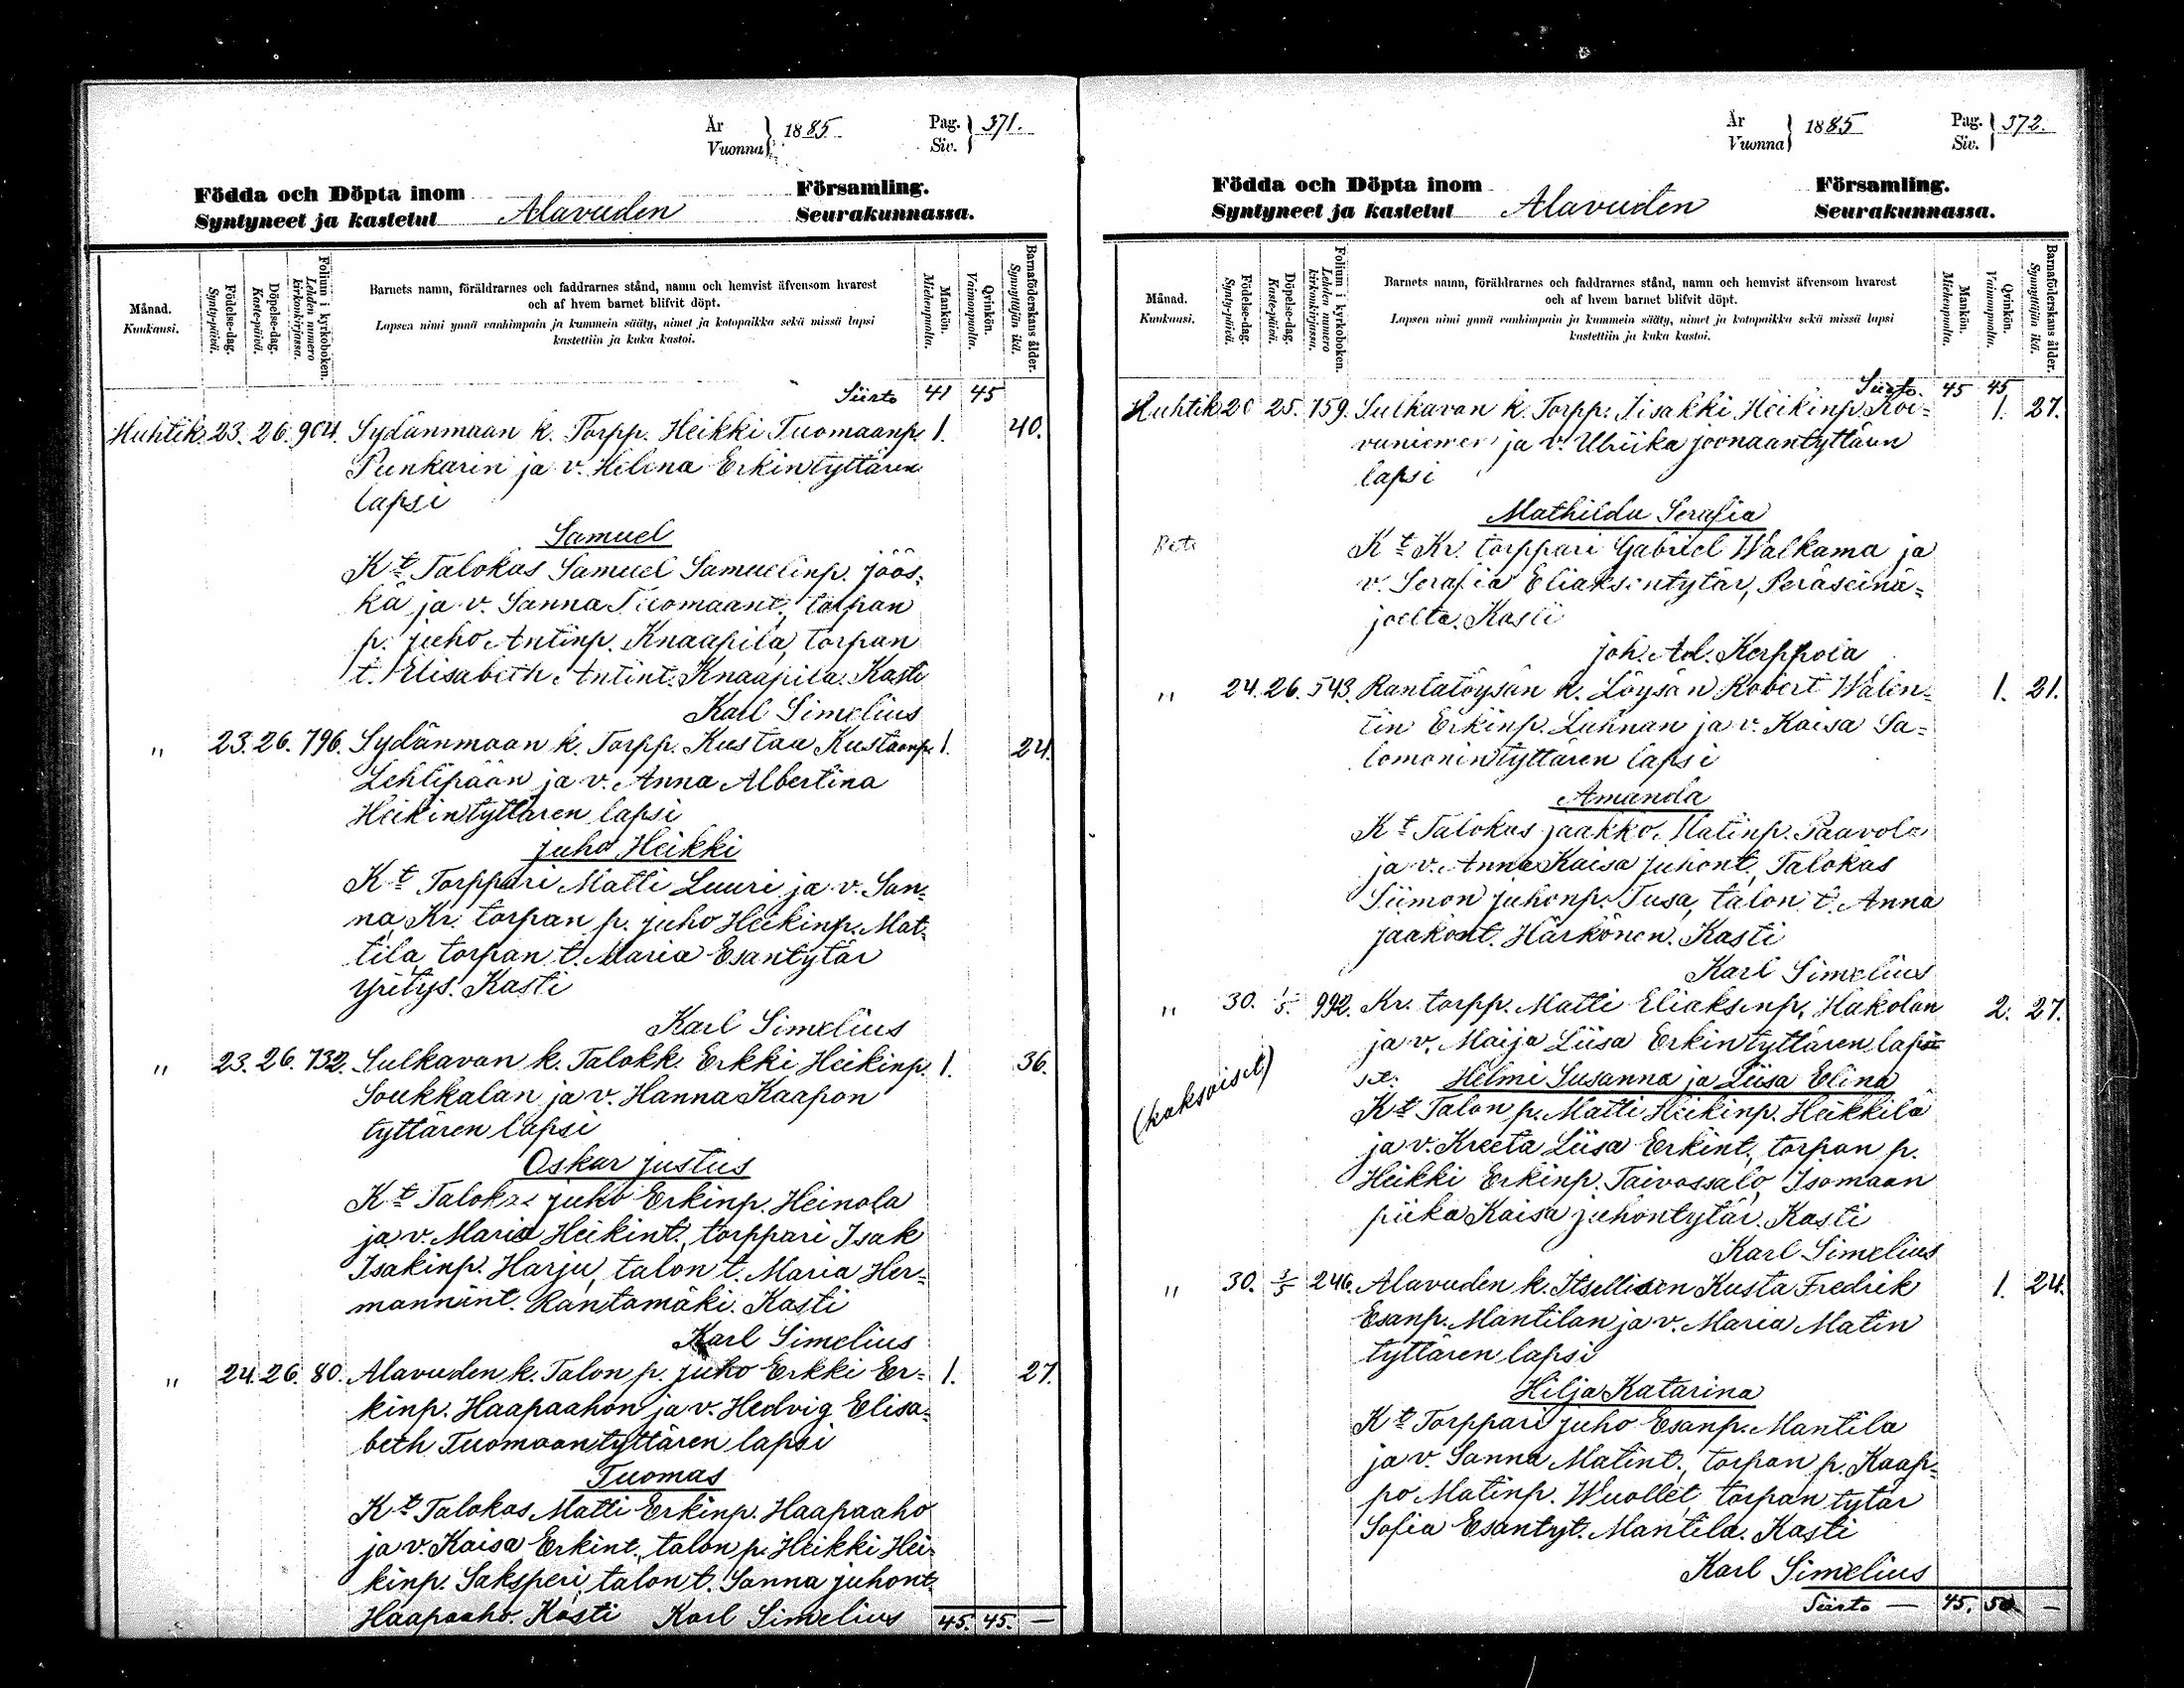 År
Vuonna } 1885
Pag.
Siv. } 371.
Födda och Döpta inom Församling.
Syntyneet ja kastetut Alavuden Seurakunnassa.
Månad.
Kuukausi.
Födelse-dag.
Synty-päivä.
Döpelse-dag.
Kaste-päivä.
Folium i kyrkoboken.
Lehden numero kirkonkirjassa.
Barnets namn, föräldrarnes och faddrarnes stånd, namn och hemvist äfvensom hvarest
och af hvem barnet blifvit döpt.
Lapsen nimi ynnä vanhimpain ja kummein sääty, nimet ja kotopaikka sekä missä lapsi
kastettiin ja kuka kastoi.
Mankön.
Miehenpuolia.
Qvinkön.
Vaimonpuolia.
Barnaföderskans ålder.
Synnyttäjän ikä.
Siirto 41 45
Huhtik. 23. 26. 904. Sydänmaan k. Torpp. Heikki Tuomaanp. 1. 40.
Punkarin ja v. Helena Erkintyttären
lapsi
Samuel
Kt Talokas Samuel Samuelinp. Jöös-
kä ja v. Sanna Tuomaant., torpan
p. Juho Antinp. Knaapila, torpan
t. Elisabeth Antint. Knaapila. Kasti
Karl Simelius
" 23. 26. 796. Sydänmaan k. Torpp. Kustaa Kustaanp. 1. 24.
Lehtipään ja v. Anna Albertina
Heikintyttären lapsi
Juho Heikki
Kt Torppari Matti Luuri ja v. San-
na, Kr. torpan p. Juho Heikinp. Mat-
tila torpan t. Maria Esantytär
Yritys. Kasti
Karl Simelius
" 23. 26. 732. Sulkavan k. Talokk. Erkki Heikinp. 1. 36.
Soukkalan ja v. Hanna Kaapon
tyttären lapsi
Oskar Justus
Kt Talokas Juho Erkinp. Heinola
ja v. Maria Heikint., torppari Isak
Isakinp. Harju, talon t. Maria Her-
mannint. Rantamäki. Kasti
Karl Simelius
" 24. 26. 80. Alavuden k. Talon p. Juho Erkki Er- 1. 27.
kinp. Haapaahon ja v. Hedvig Elisa-
beth Tuomaantyttären lapsi
Tuomas
Kt Talokas Matti Erkinp. Haapaaho
ja v. Kaisa Erkint., talon p. Heikki Hei-
kinp. Saksperi, talon t. Sanna Juhont.
Haapaaho. Kasti Karl Simelius 45. 45. —
År
Vuonna } 1885
Pag.
Siv. } 372.
Födda och Döpta inom Församling.
Syntyneet ja kastetut Alavuden Seurakunnassa.
Månad.
Kuukausi.
Födelse-dag.
Synty-päivä.
Döpelse-dag.
Kaste-päivä.
Folium i kyrkoboken.
Lehden numero kirkonkirjassa.
Barnets namn, föräldrarnes och faddrarnes stånd, namn och hemvist äfvensom hvarest
och af hvem barnet blifvit döpt.
Lapsen nimi ynnä vanhimpain ja kummein sääty, nimet ja kotopaikka sekä missä lapsi
kastettiin ja kuka kastoi.
Mankön.
Miehenpuolia.
Qvinkön.
Vaimonpuolia.
Barnaföderskans ålder.
Synnyttäjän ikä.
Siirto. 45 45
Huhtik 20 25. 759. Sulkavan k. Torpp. Iisakki Heikinp. Koi- 1. 27.
vuniemen ja v. Ulriika Joonaantyttären
lapsi
Mathilda Serafia
Kt Kr. torppari Gabriel Walkama ja
v. Serafia Eliaksentytär, Peräseinä-
joelta. Kasti
Joh. Ad. Kerppola
" 24. 26. 543. Rantatöysän k. Löysän Robert Walen- 1. 21.
tin Erkinp. Luhnan ja v. Kaisa Sa-
lomonintyttären lapsi
Amanda
Kt Talokas Jaakko Matinp. Paavola
ja v. Anna Kaisa Juhont., Talokas
Siimon Juhonp. Tusa, talon t. Anna
Jaakont. Härkönen. Kasti
Karl Simelius
" 30. 1/5. 992. Kr. torpp. Matti Eliaksenp. Hakolan 2. 27.
ja v. Maija Liisa Erkintyttären lap-
set: Helmi Susanna ja Liisa Elina
(kaksoiset)
Kt Talon p. Matti Heikinp. Heikkilä
ja v. Kreeta Liisa Erkint., torpan p.
Heikki Erkinp. Taivassalo, Isomaan
piika Kaisa Juhontytär. Kasti
Karl Simelius
" 30. 3/5 246. Alavuden k. Itsellisen Kusta Fredrik 1. 24.
Esanp. Mantilan ja v. Maria Matin
tyttären lapsi
Hilja Katarina
Kt Torppari Juho Esanp. Mantila
ja v. Sanna Matint., torpan p. Kaap-
po Matinp. Wuollet, torpan tytär
Sofia Esantyt. Mantila. Kasti
Karl Simelius
Siirto — 45. 50 —